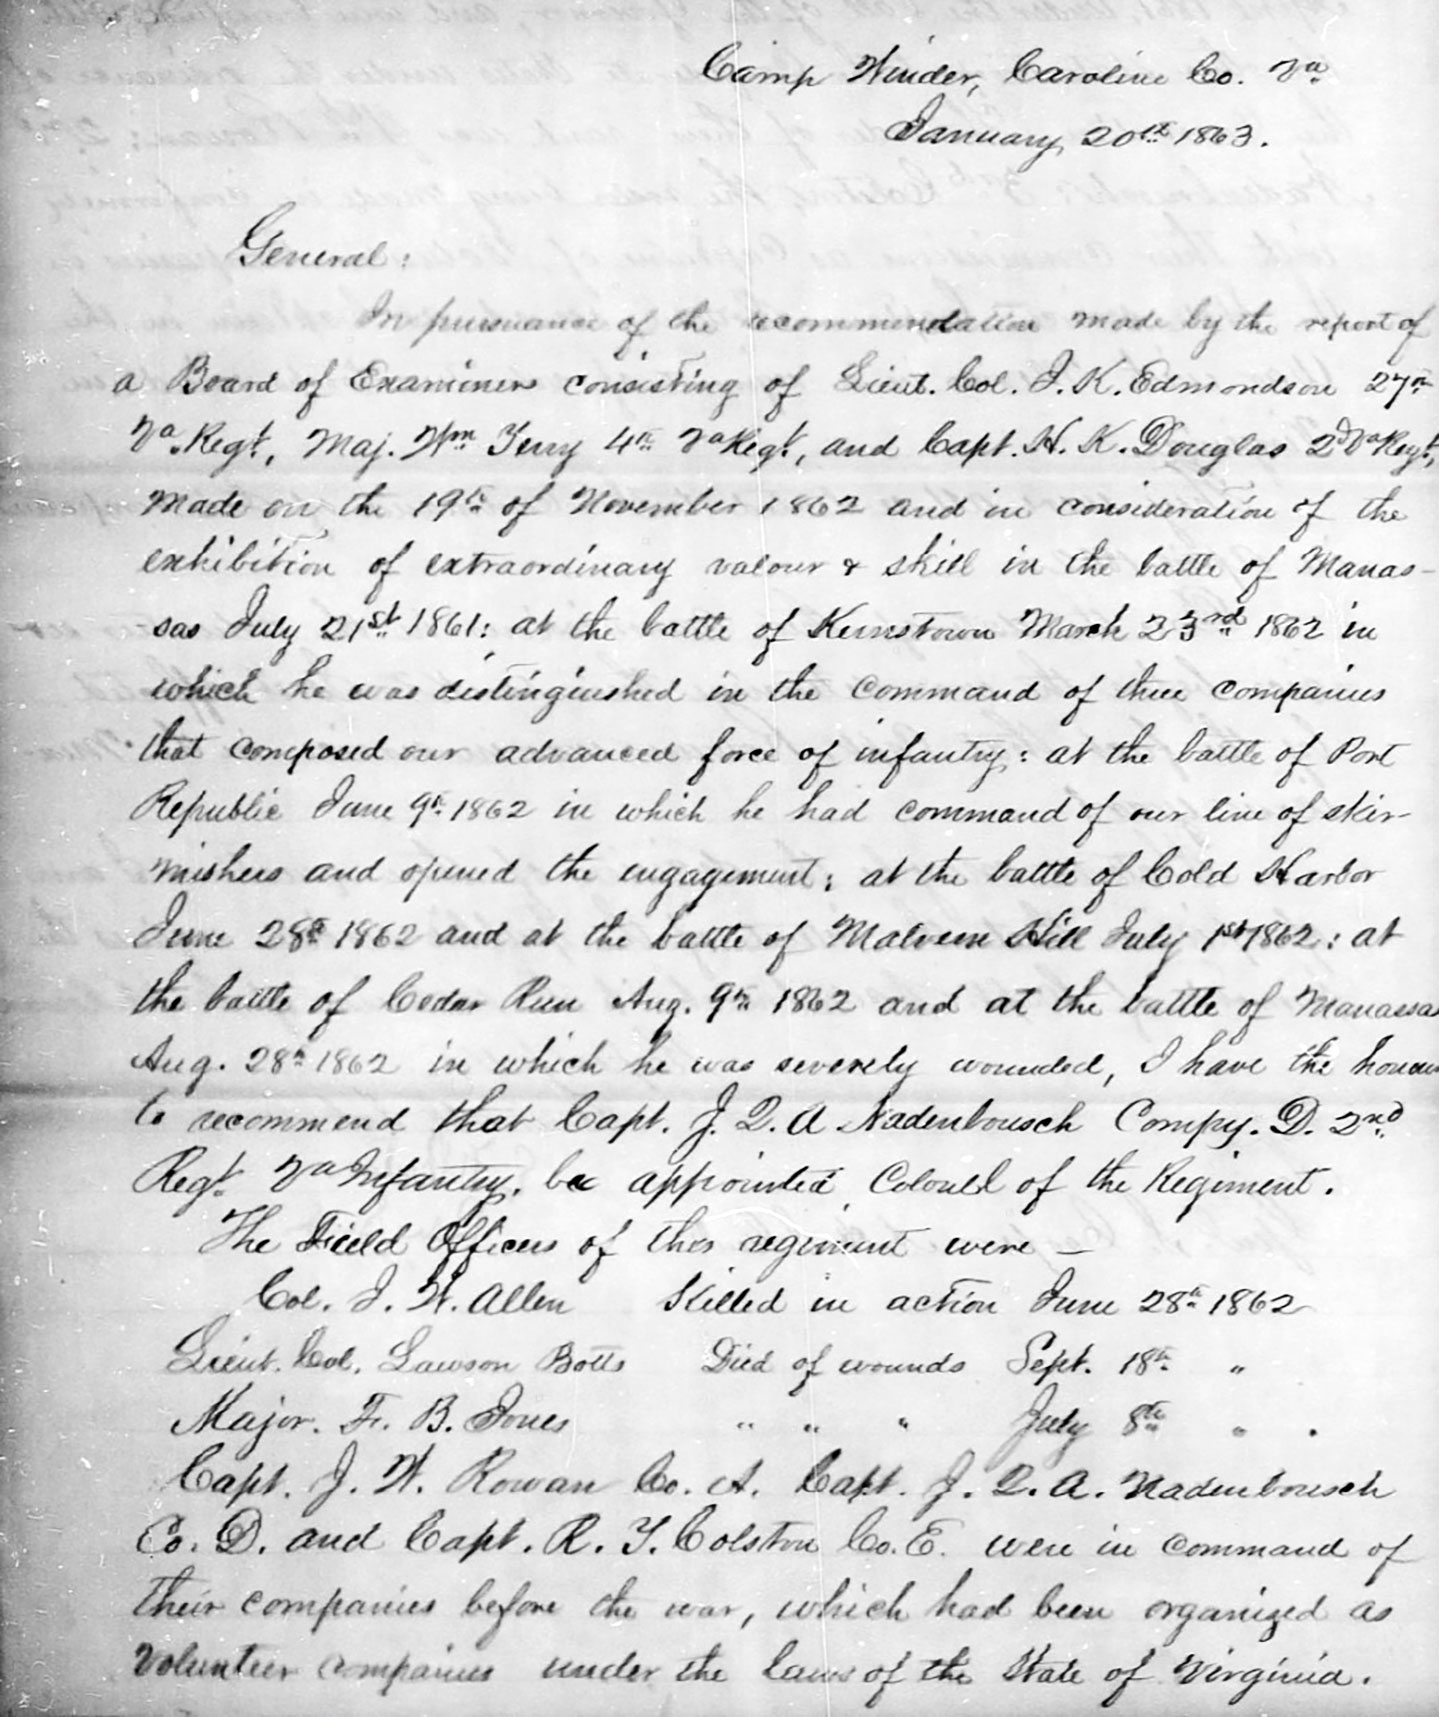 Camp Winder, Caroline Co. Va
January 20th 1863.
General:
In pursuance of the recommendation made by the report of
a Board of Examiners consisting of Lieut. Col. J. K. Edmondson 27th
Va Regt, Maj. Wm Terry 4th Va Regt, and Capt. H. K. Douglas 2d Va Regt,
made on the 19th of November 1862 and in consideration of the
exhibition of extraordinary valour & skill in the battle of Manas-
sas July 21st 1861: at the battle of Kernstown March 23rd 1862 in
which he was distinguished in the command of three companies
that composed our advanced force of infantry: at the battle of Port
Republic June 9th 1862 in which he had command of our line of skir-
mishers and opened the engagement: at the battle of Cold Harbor
June 28th 1862 and at the battle of Malvern Hill July 1st 1862: at
the battle of Cedar Run Aug. 9th 1862 and at the battle of Manassas
Aug. 28th 1862 in which he was severely wounded, I have the honour
to recommend that Capt. J. Q. A Nadenbousch Compy. D. 2nd
Regt Va Infantry, be appointed Colonel of the Regiment.
The Field Officers of this regiment were —
Col. J. W. Allen Killed in action June 28th 1862
Lieut. Col. Lawson Botts Died of wounds Sept. 18th "
Major. F. B. Jones " " " July 8th " .
Capt. J. W. Rowan Co. A. Capt. J. Q. A. Nadenbousch
Co. D. and Capt. R. T. Colston Co. E. were in command of
their companies before the war, which had been organized as
Volunteer companies under the laws of the State of Virginia.